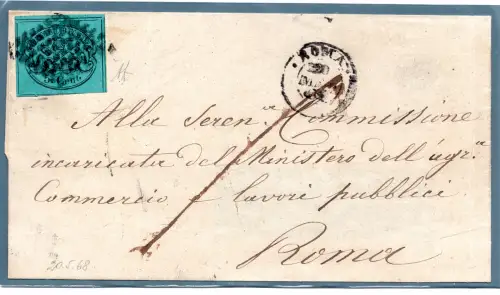 5 CENT.
ROMA
Alla Seren.a Commissione
incaricata del Ministero dell'agr.a
Commercio e lavori pubblici
Roma
20.5.68